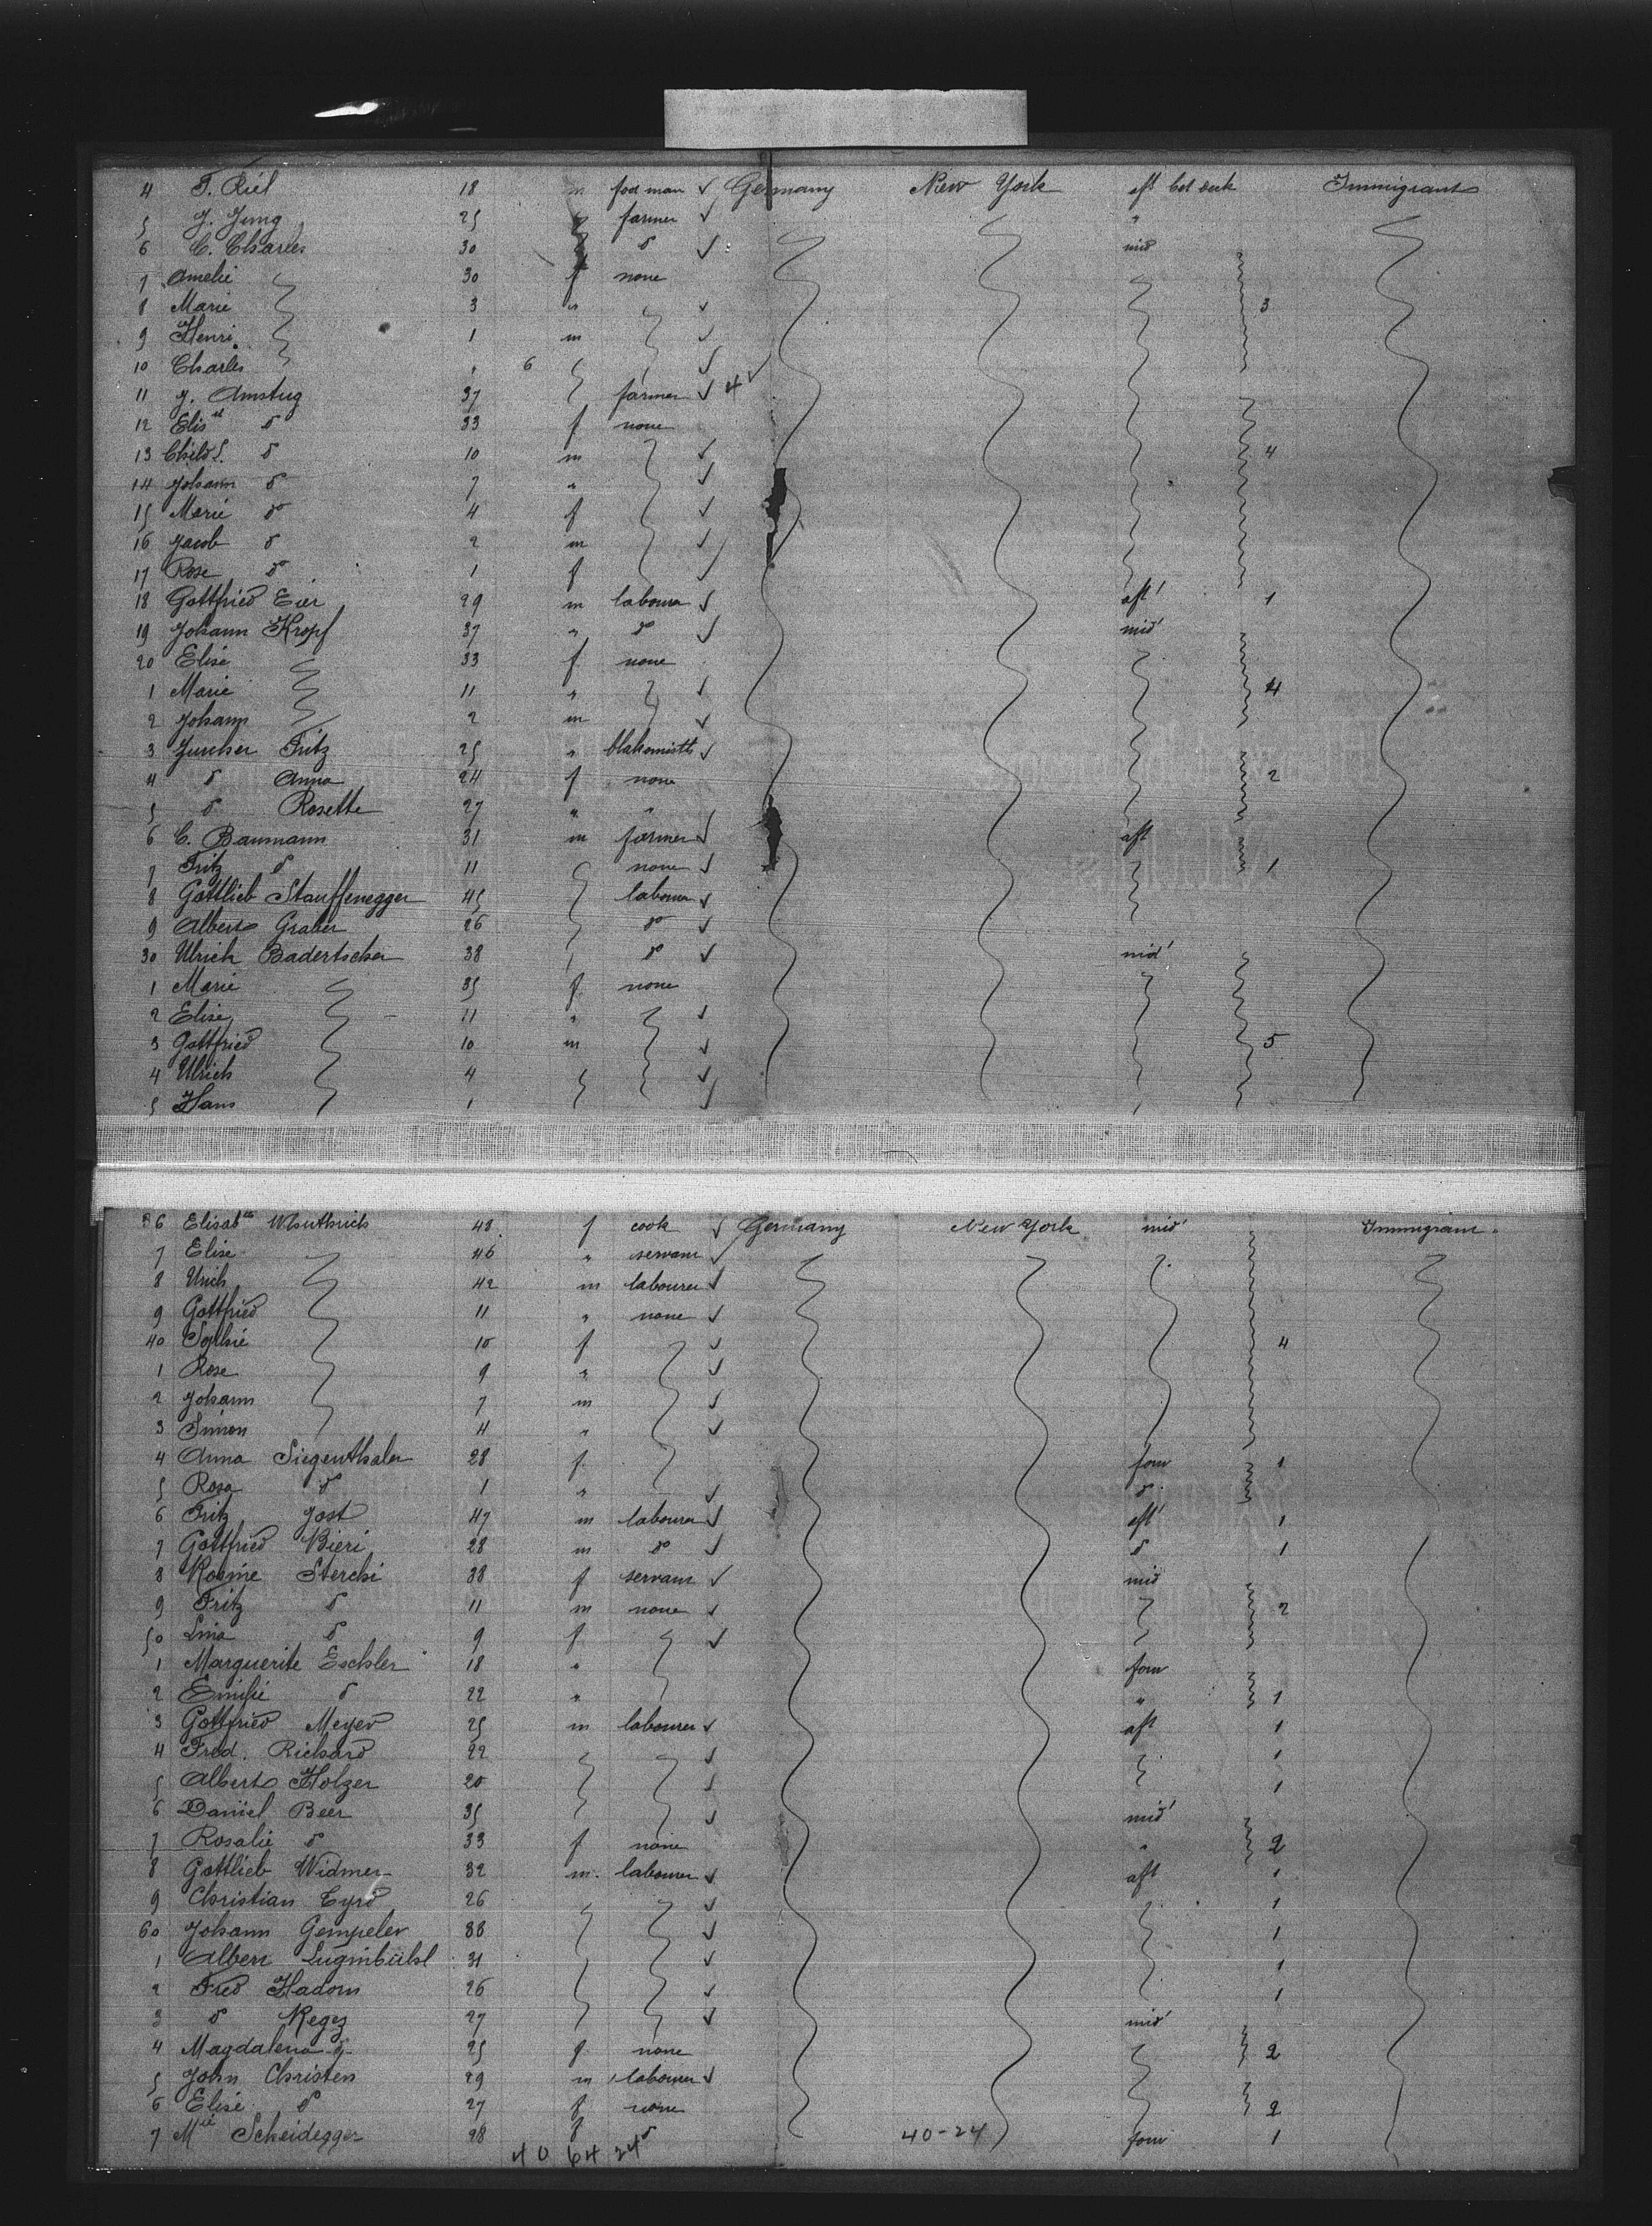 4 F. Riel 18 m food man ✓ Germany New York aft bet deck Immigrant
5 J. Jung 25 farmer ✓ "
6 C. Charles 30 do ✓ mid
7 Amelie 30 f none
8 Marie 3 " ✓ 3
9 Henri 1 m ✓
10 Charles 6 ✓
11 J. Amstug 37 farmer ✓ 4 ✓
12 Elisth do 33 f none
13 Child S. do 10 m ✓ 4
14 Johann do 7 " ✓
15 Marie do 4 f ✓
16 Jacob do 2 m ✓
17 Rose do 1 f ✓
18 Gottfried Eier 29 m labourer ✓ aft 1
19 Johann Kropf 37 " do ✓ mid
20 Elise 33 f none
1 Marie 11 " ✓ 4
2 Johann 2 m ✓
3 Zurcher Fritz 25 " blaksmith ✓
4 do Anna 24 f none 2
5 do Rosette 27 " "
6 C. Baumann 31 m farmer ✓ aft
7 Fritz do 11 none ✓ 1
8 Gottlieb Stauffenegger 45 labourer ✓
9 Albert Graber 26 do ✓
30 Ulrich Badertscher 38 do ✓ mid
1 Marie 35 f none
2 Elise 11 " ✓
3 Gottfried 10 m ✓ 5
4 Ulrich 4 ✓
5 Hans 1 ✓
36 Elisabth Wuthrich 48 f cook ✓ Germany New York mid Immigrant
7 Elise 46 " servant ✓
8 Urich 42 m labourer ✓
9 Gottfried 11 " none ✓
40 Sophie 10 f ✓ 4
1 Rose 9 " ✓
2 Johann 7 m ✓
3 Simon 4 " ✓
4 Anna Siegenthaler 28 f forw 1
5 Rosa do 1 " ✓ do
6 Fritz Jost 47 m labourer ✓ aft 1
7 Gottfried Bieri 28 m do ✓ do 1
8 Rosine Sterchi 38 f servant ✓ mid
9 Fritz do 11 m none ✓ 2
50 Lina do 9 f ✓
1 Marguerite Eschler 18 " forw
2 Emilie do 22 " " 1
3 Gottfried Meyer 25 m labourer ✓ aft 1
4 Fred. Richard 22 ✓ 1
5 Albert Holzer 20 ✓ 1
6 Daniel Beer 35 ✓ mid
7 Rosalie do 33 f none " 2
8 Gottlieb Widmer 32 m. labourer ✓ aft 1
9 Christian 26 ✓ 1
60 Johann Gempeler 38 ✓ 1
1 Albert Luginbühl 31 ✓ 1
2 Fred Hadorn 26 ✓ 1
3 do Regez 27 ✓ mid
4 Magdalena do 25 f none 2
5 John Christen 29 m labourer ✓
6 Elise do 27 f none 2
7 Mie Scheidegger 28 f do 40-24 forw 1
40 64 24